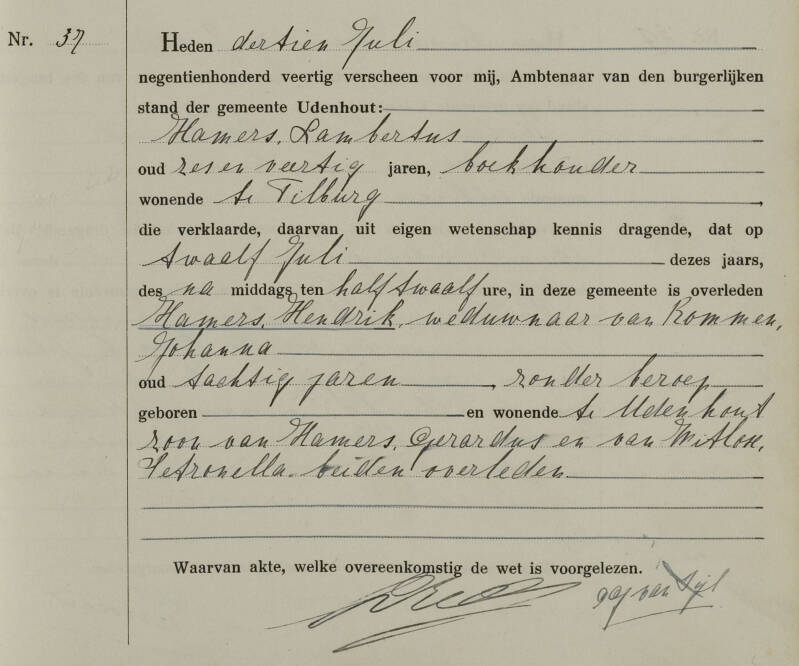 Nr. 37
Heden dertien Juli
negentienhonderd veertig verscheen voor mij, Ambtenaar van den burgerlijken
stand der gemeente Udenhout:
Hamers, Lambertus
oud zes en veertig jaren, boekhouder
wonende te Tilburg,
die verklaarde, daarvan uit eigen wetenschap kennis dragende, dat op
twaalf Juli dezes jaars,
des na middags ten half twaalf ure, in deze gemeente is overleden
Hamers, Hendrik, weduwnaar van Rommen,
Johanna
oud tachtig jaren, zonder beroep
geboren en wonende te Udenhout
zoon van Hamers, Gerardus en van Witlox,
Petronella beiden overleden
Waarvan akte, welke overeenkomstig de wet is voorgelezen.
van